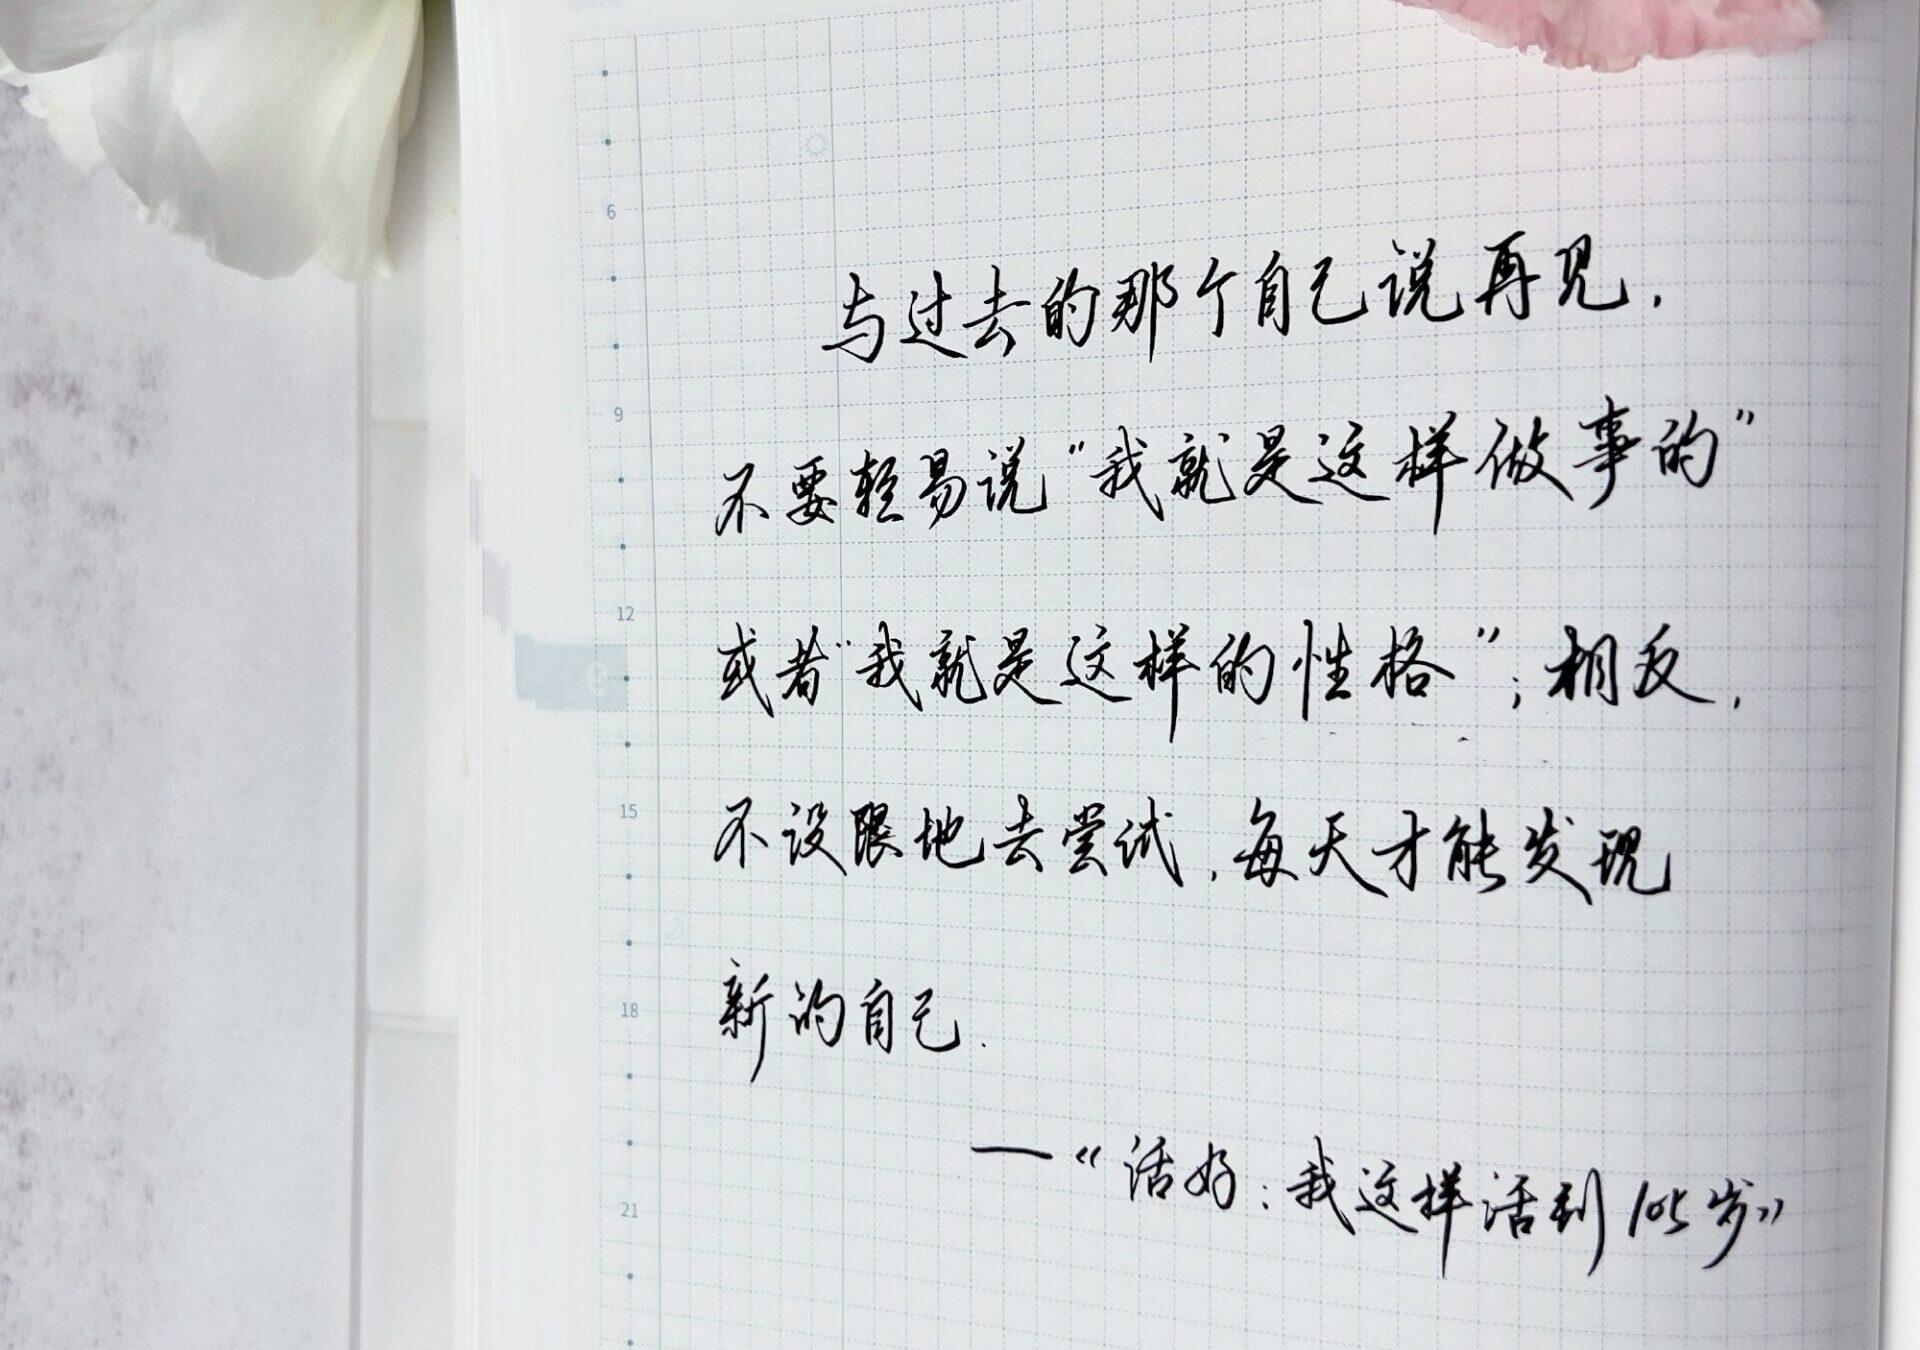 与过去的那个自己说再见，
6
9
不要轻易说“我就是这样做事的”
12
或者“我就是这样的性格”；相反，
15
不设限地去尝试，每天才能发现
18
新的自己.
—《活好：我这样活到105岁》
21